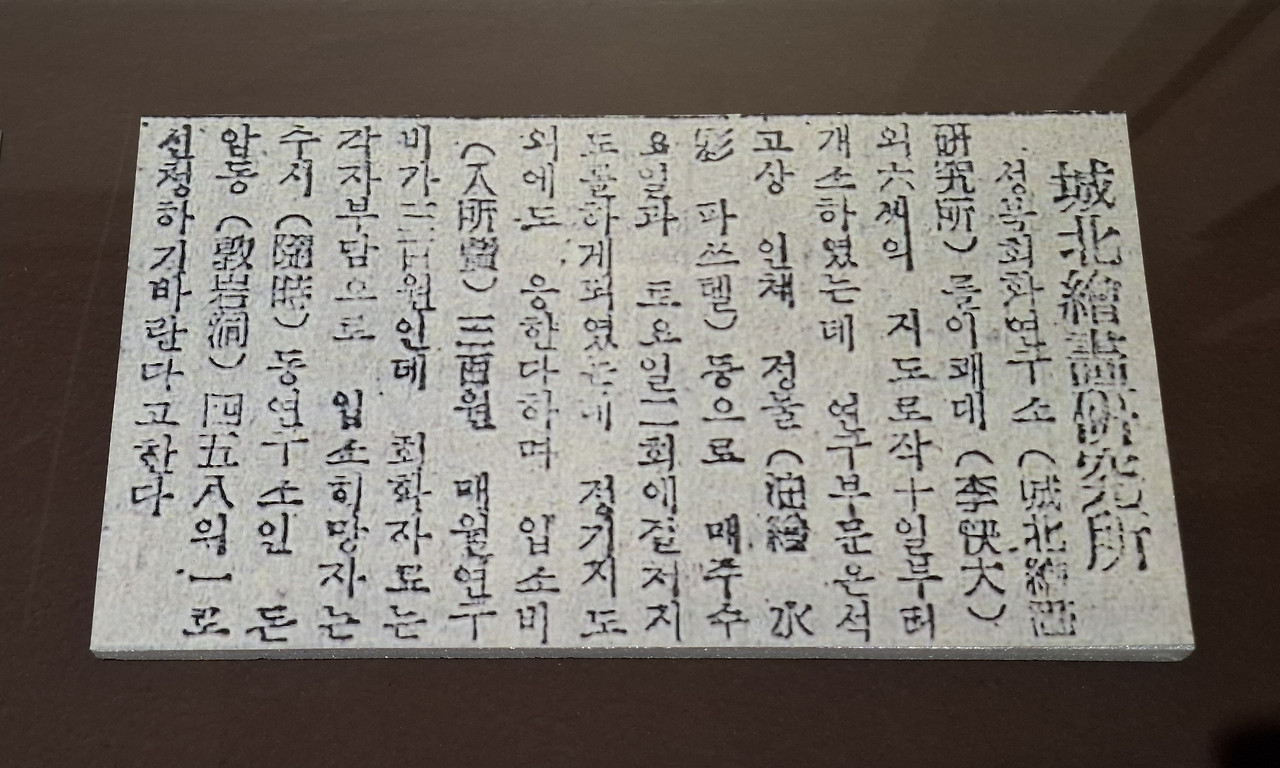 城北繪畵硏究所
성북회화연구소(城北繪畵
硏究所)를이쾌대(李快大)
외六씨의 지도로작十일부터
개소하였는데 연구부문은석
고상 인체 정물(油繪 水
彩 파쓰텔)등으로 매주수
요일과 토요일二회에걸처지
도를하게되였는데 정기지도
외에도 응한다하며 입소비
(入所費)三百원 매월연구
비가二百원인데 회화자료는
각자부담으로 입소히망자는
수시(隨時)동연구소인 돈
암동(敦岩洞)四五八의一로
신청하기바란다고한다